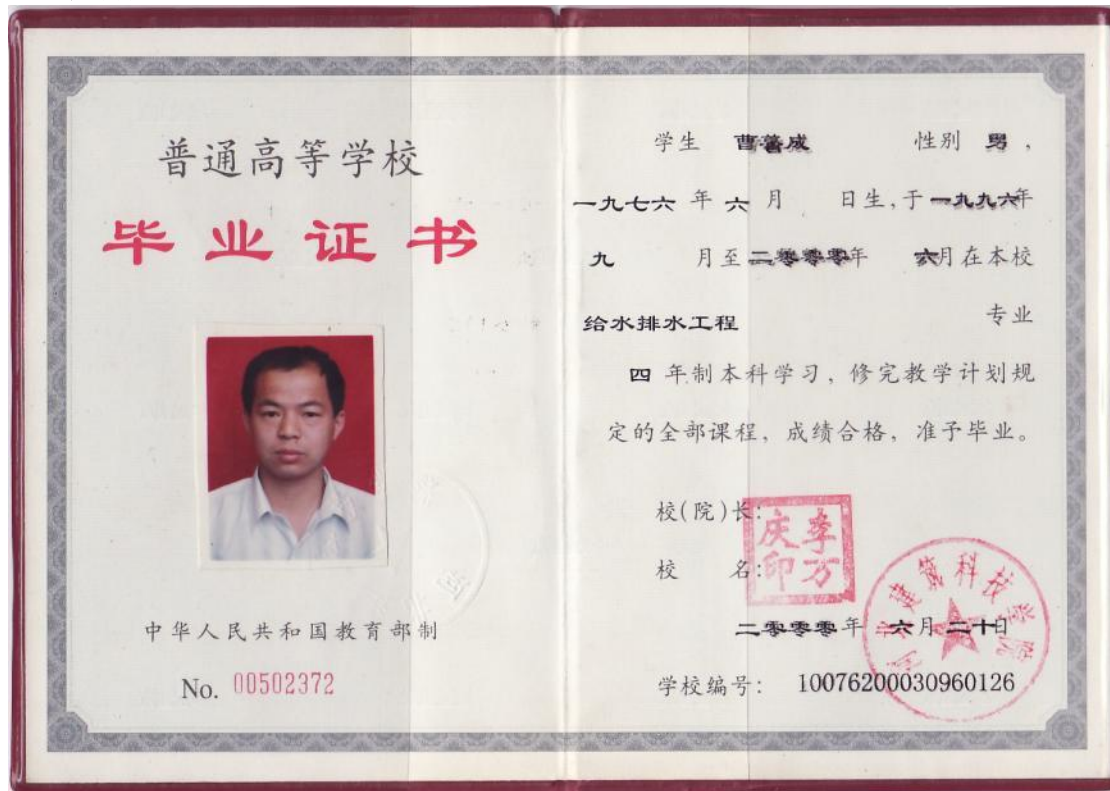 普通高等学校
毕业证书
中华人民共和国教育部制
No. 00502372
学生 曹善成 性别 男,
一九七六 年 六 月 日生,于 一九九六年
九 月至 二零零零年 六月在本校
给水排水工程 专业
四 年制本科学习,修完教学计划规
定的全部课程,成绩合格,准予毕业。
校(院)长:
李万庆印
校 名:
河北建筑科技学院
二零零零年 六月二十日
学校编号: 10076200030960126